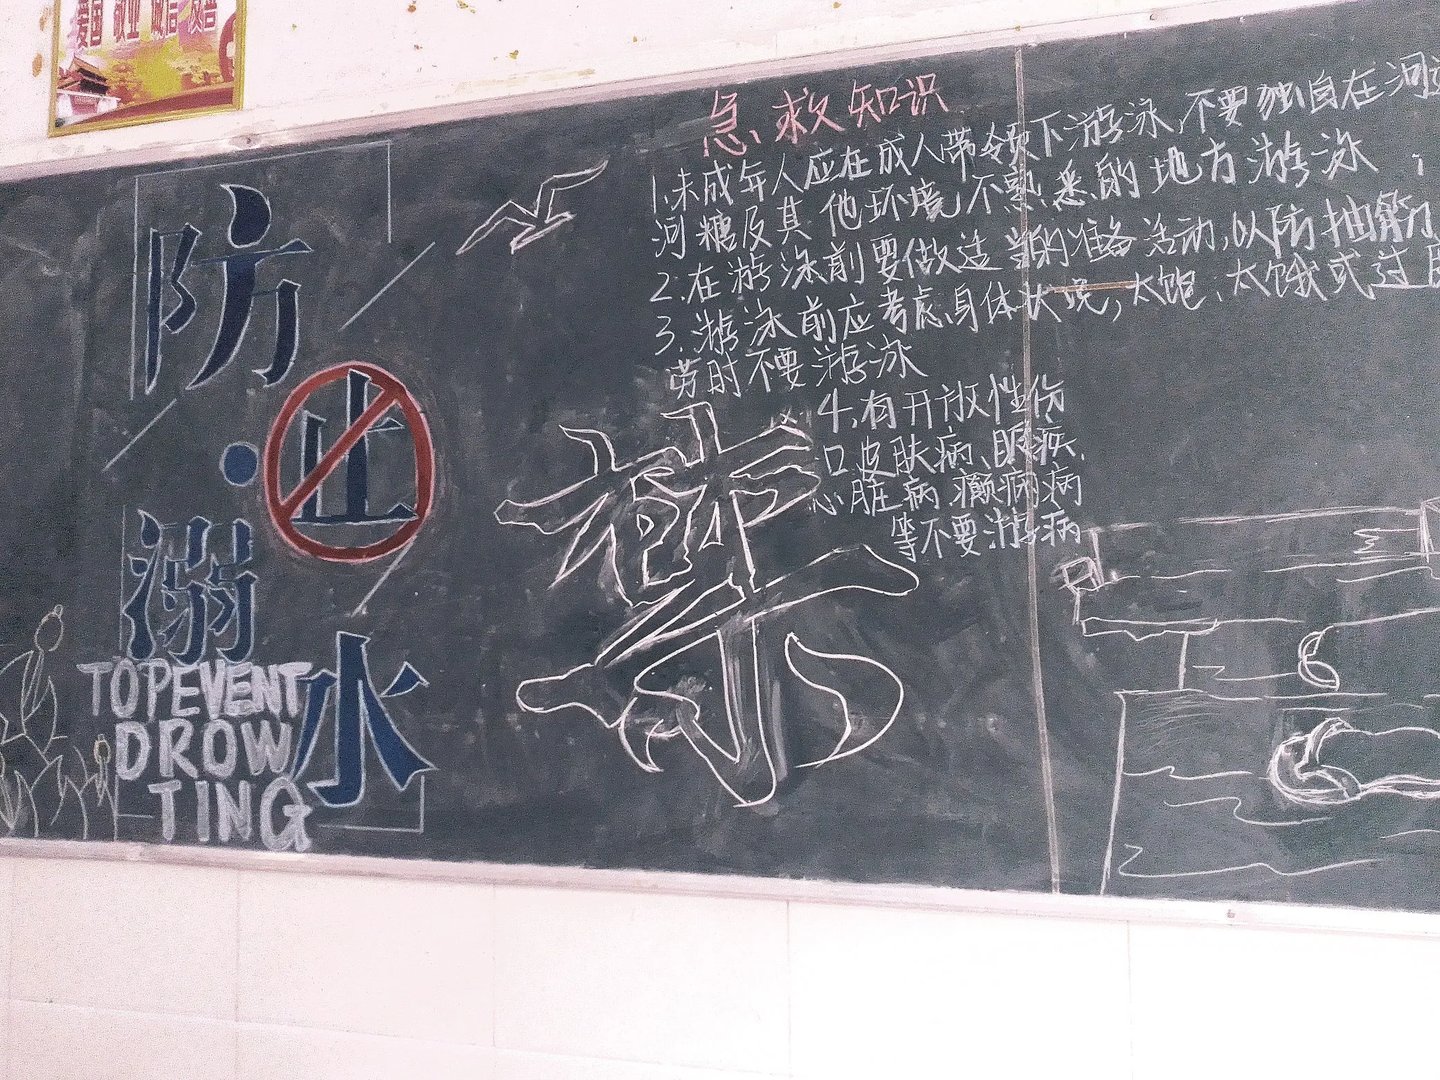 爱国 敬业 诚信 友善
防
止
溺
水
TOPEVENT
DROW
TING
禁
急救知识
1.未成年人应在成人带领下游泳,不要独自在河边
河糖及其他环境不熟悉的地方游泳;
2.在游泳前要做适当的准备活动,以防抽筋
3.游泳前应考虑身体状况,太饱、太饿或过度
劳时不要游泳
4.有开放性伤
口皮肤病、眼疾、
心脏病.癫痫病
等不要游病